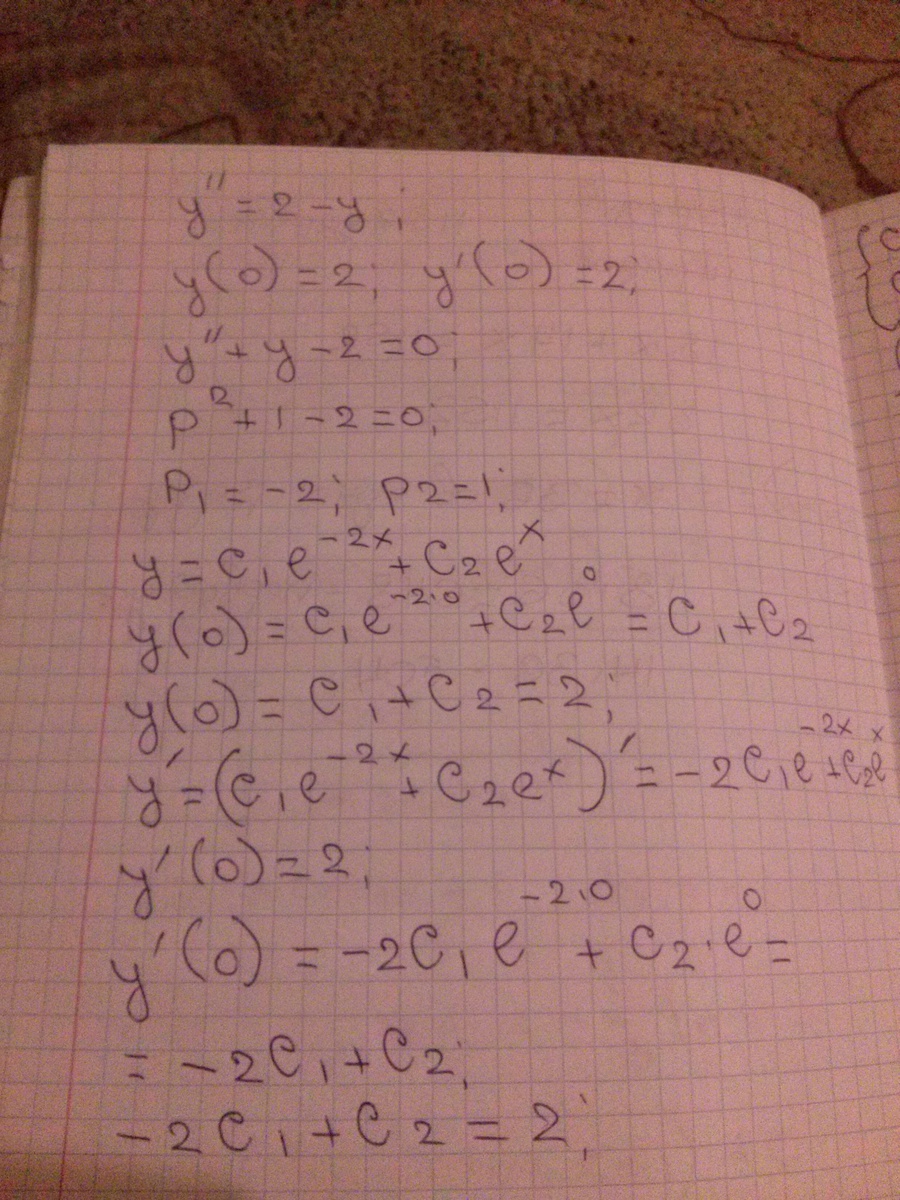 y'' = 2 - y ;
y(0) = 2; y'(0) = 2;
y'' + y - 2 = 0;
p² + 1 - 2 = 0;
P₁ = -2; p2 = 1;
y = C₁e^(-2x) + C₂e^x
y(0) = C₁e^(-2·0) + C₂e^0 = C₁ + C₂
y(0) = C₁ + C₂ = 2;
y' = (C₁e^(-2x) + C₂e^x)' = -2C₁e^(-2x) + C₂e^x
y'(0) = 2;
y'(0) = -2C₁e^(-2·0) + C₂·e^0 =
= -2C₁ + C₂;
-2C₁ + C₂ = 2;